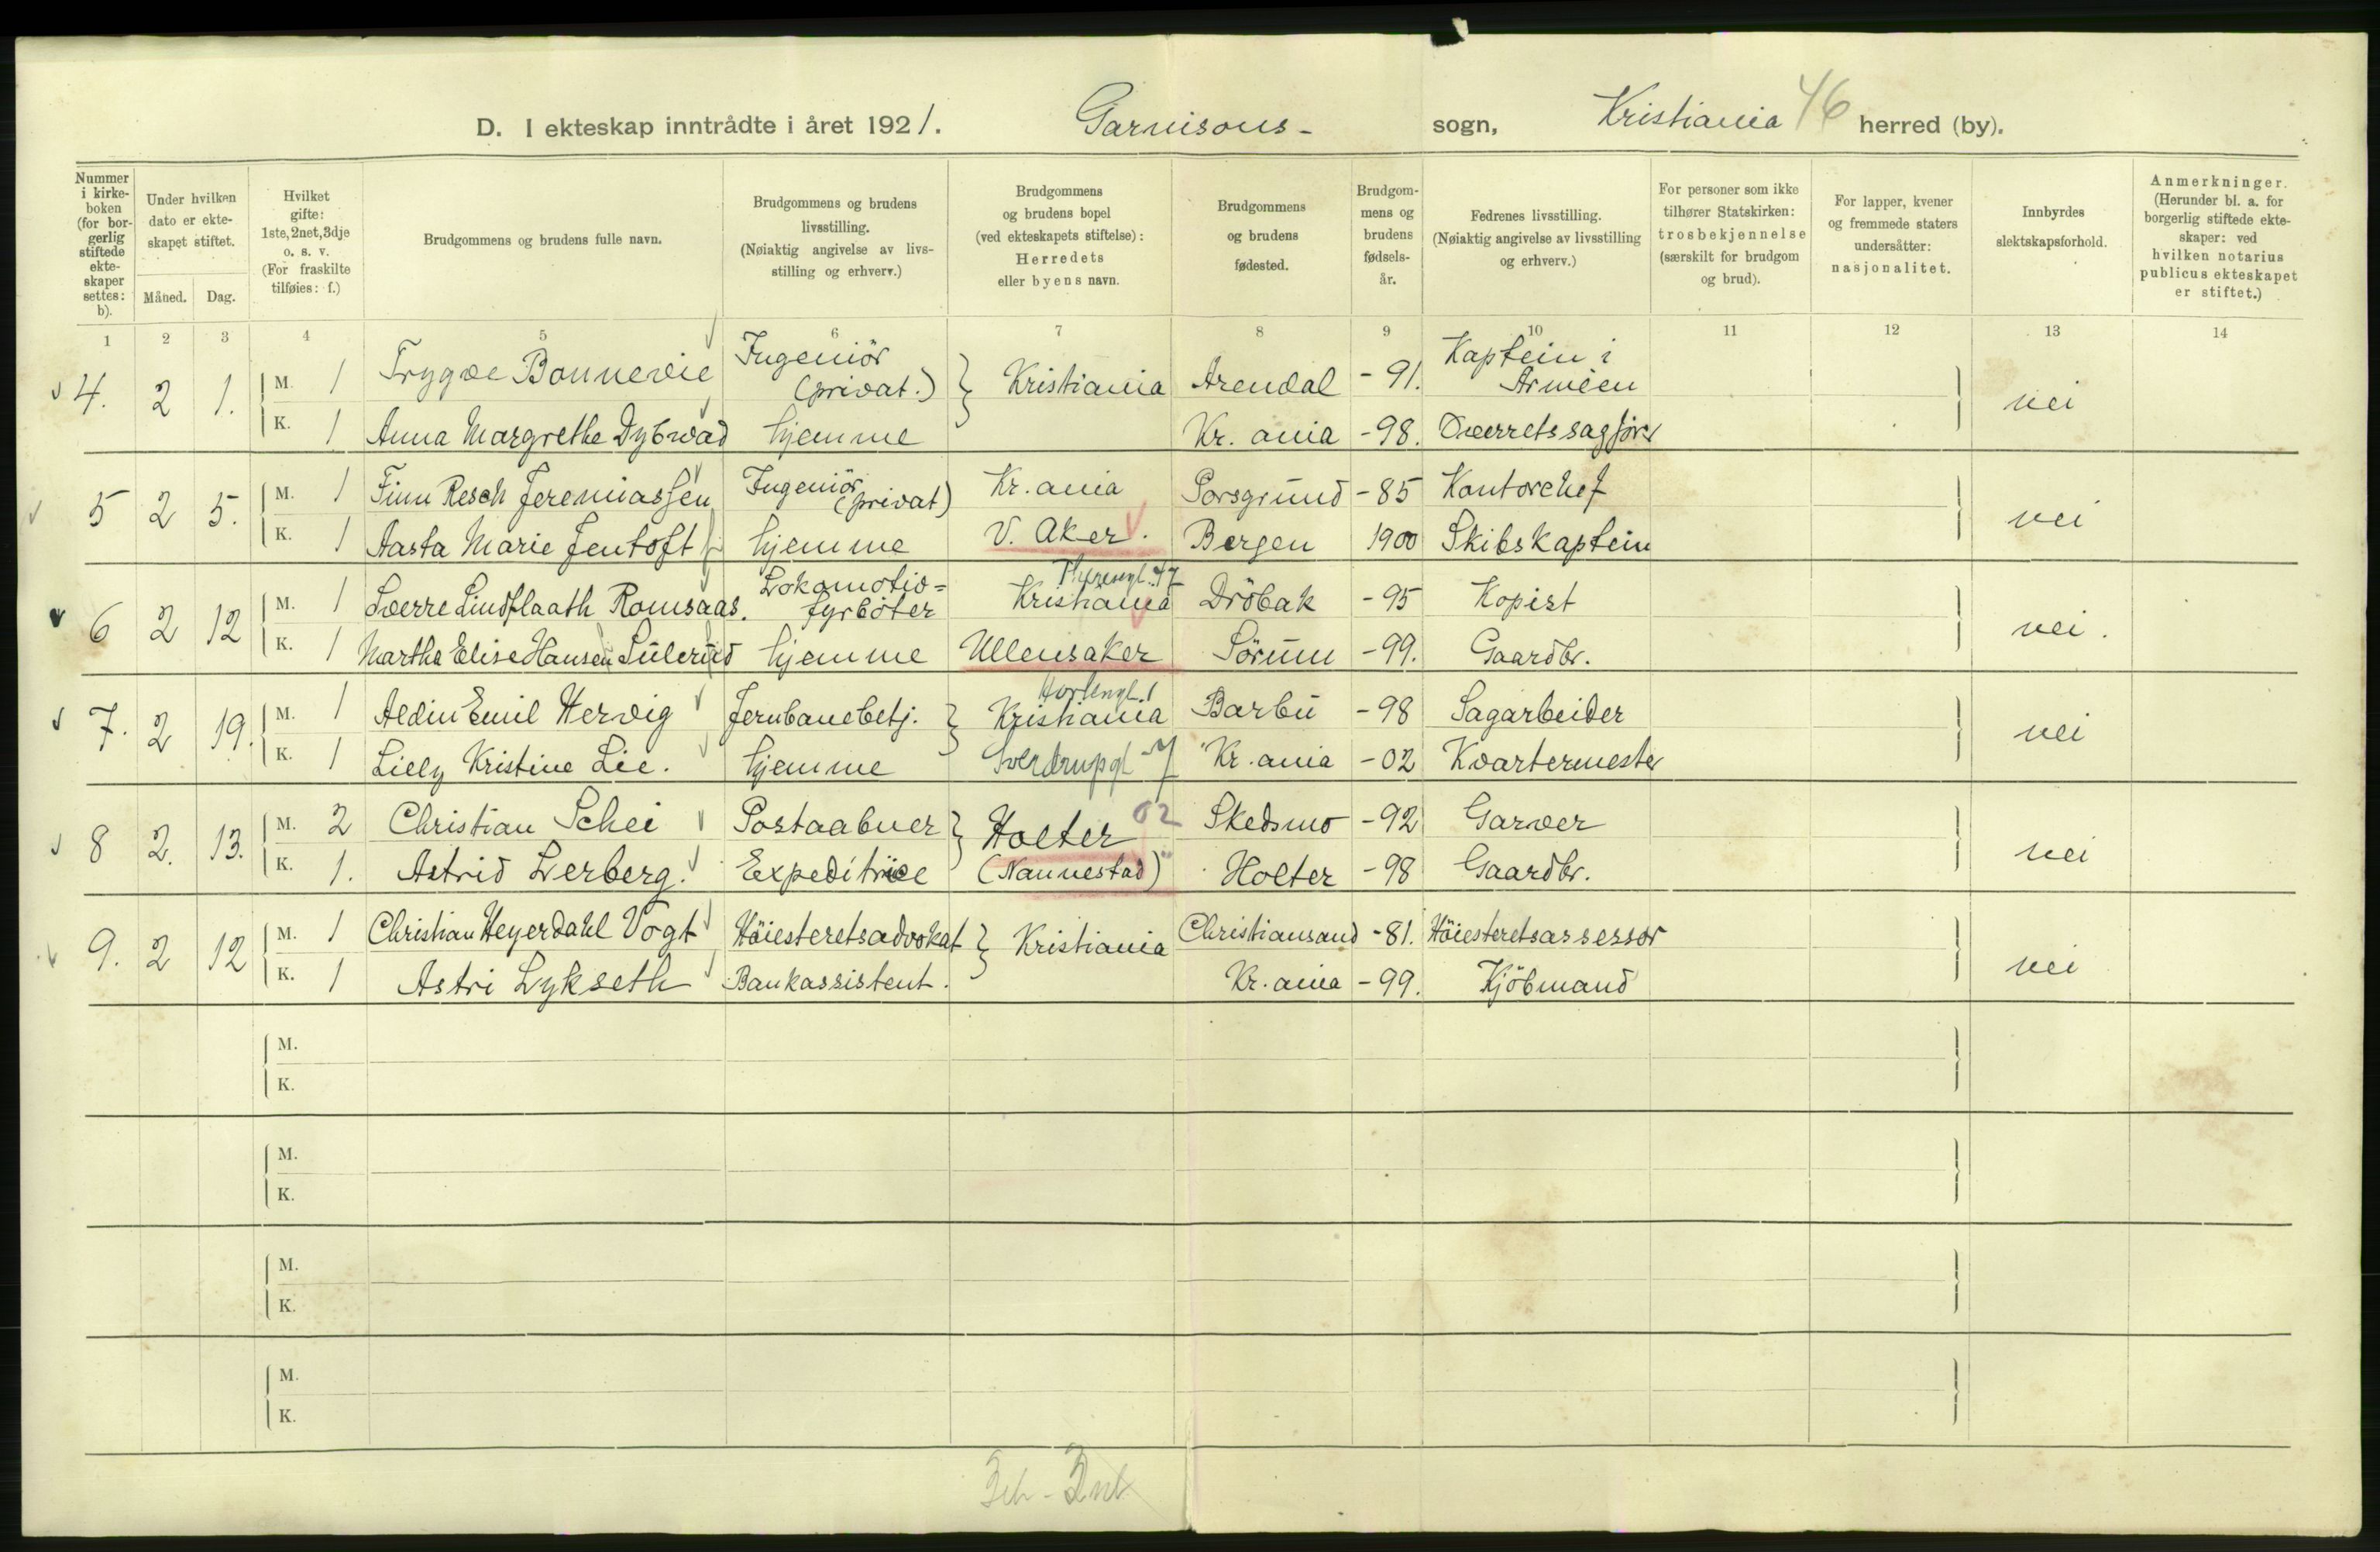 D. I ekteskap inntrådte i året 1921. Garnisons- sogn, Kristiania 46 herred (by).
Nummer i kirke-boken (for bor-gerlig stiftede ekte-skaper settes: b).
Under hvilken dato er ekte-skapet stiftet.
Måned. Dag.
Hvilket gifte: 1ste, 2net, 3dje o. s. v. (For fraskilte tilføies: f.)
Brudgommens og brudens fulle navn.
Brudgommens og brudens livsstilling. (Nøiaktig angivelse av livs-stilling og erhverv.)
Brudgommens og brudens bopel (ved ekteskapets stiftelse): Herredets eller byens navn.
Brudgommens og brudens fødested.
Brudgom-mens og brudens fødsels-år.
Fedrenes livsstilling. (Nøiaktig angivelse av livsstilling og erhverv.)
For personer som ikke tilhører Statskirken: trosbekjennelse (særskilt for brudgom og brud).
For lapper, kvener og fremmede staters undersåtter: nasjonalitet.
Innbyrdes slektskapsforhold.
Anmerkninger. (Herunder bl. a. for borgerlig stiftede ekte-skaper: ved hvilken notarius publicus ekteskapet er stiftet.)
1 2 3 4 5 6 7 8 9 10 11 12 13 14
4. 2 1. M. 1 Trygve Bonnevie Ingeniör (privat.) } Kristiania Arendal -91. Kaptein i Armeen nei
K. 1 Anna Margrethe Dybwad hjemme Kr.ania -98. Overretssagförer
5 2 5. M. 1 Finn Resch Jeremiassen Ingeniör (privat) Kr.ania Porsgrund -85 Kontorchef nei
K. 1 Aasta Marie Jentoft hjemme V. Aker. Bergen 1900 Skibskaptein
6 2 12 M. 1 Sverre Lindflaath Romsaas. Lokomotiv=fyrböter Theresegt. 47 Kristiania Dröbak -95 Kopist nei.
K. 1 Martha Elise Hansen Sulerud hjemme Ullensaker Sörum -99. Gaardbr.
7. 2 19. M. 1 Aldin Emil Hervig Jernbanebetj. } Kristiania Barbu -98 Sagarbeider nei
K. 1 Lielly Kristine Lie. hjemme Sverdrupgt Kr.ania -02 Kvartermester
8 2. 13. M. 2 Christian Schei Postaabner } Holter 02 Skedsmo -92 Garver nei
K. 1. Astrid Lerberg. Expeditrice (Nannestad) Holter -98 Gaardbr.
9. 2 12 M. 1 Christian Heyerdahl Vogt Höiesteretsadvokat } Kristiania Christiansand -81. Höiesteretsassessor nei
K. 1 Astri Lykseth Bankassistent. Kr.ania -99. Kjöbmand
M.
K.
M.
K.
M.
K.
M.
K.